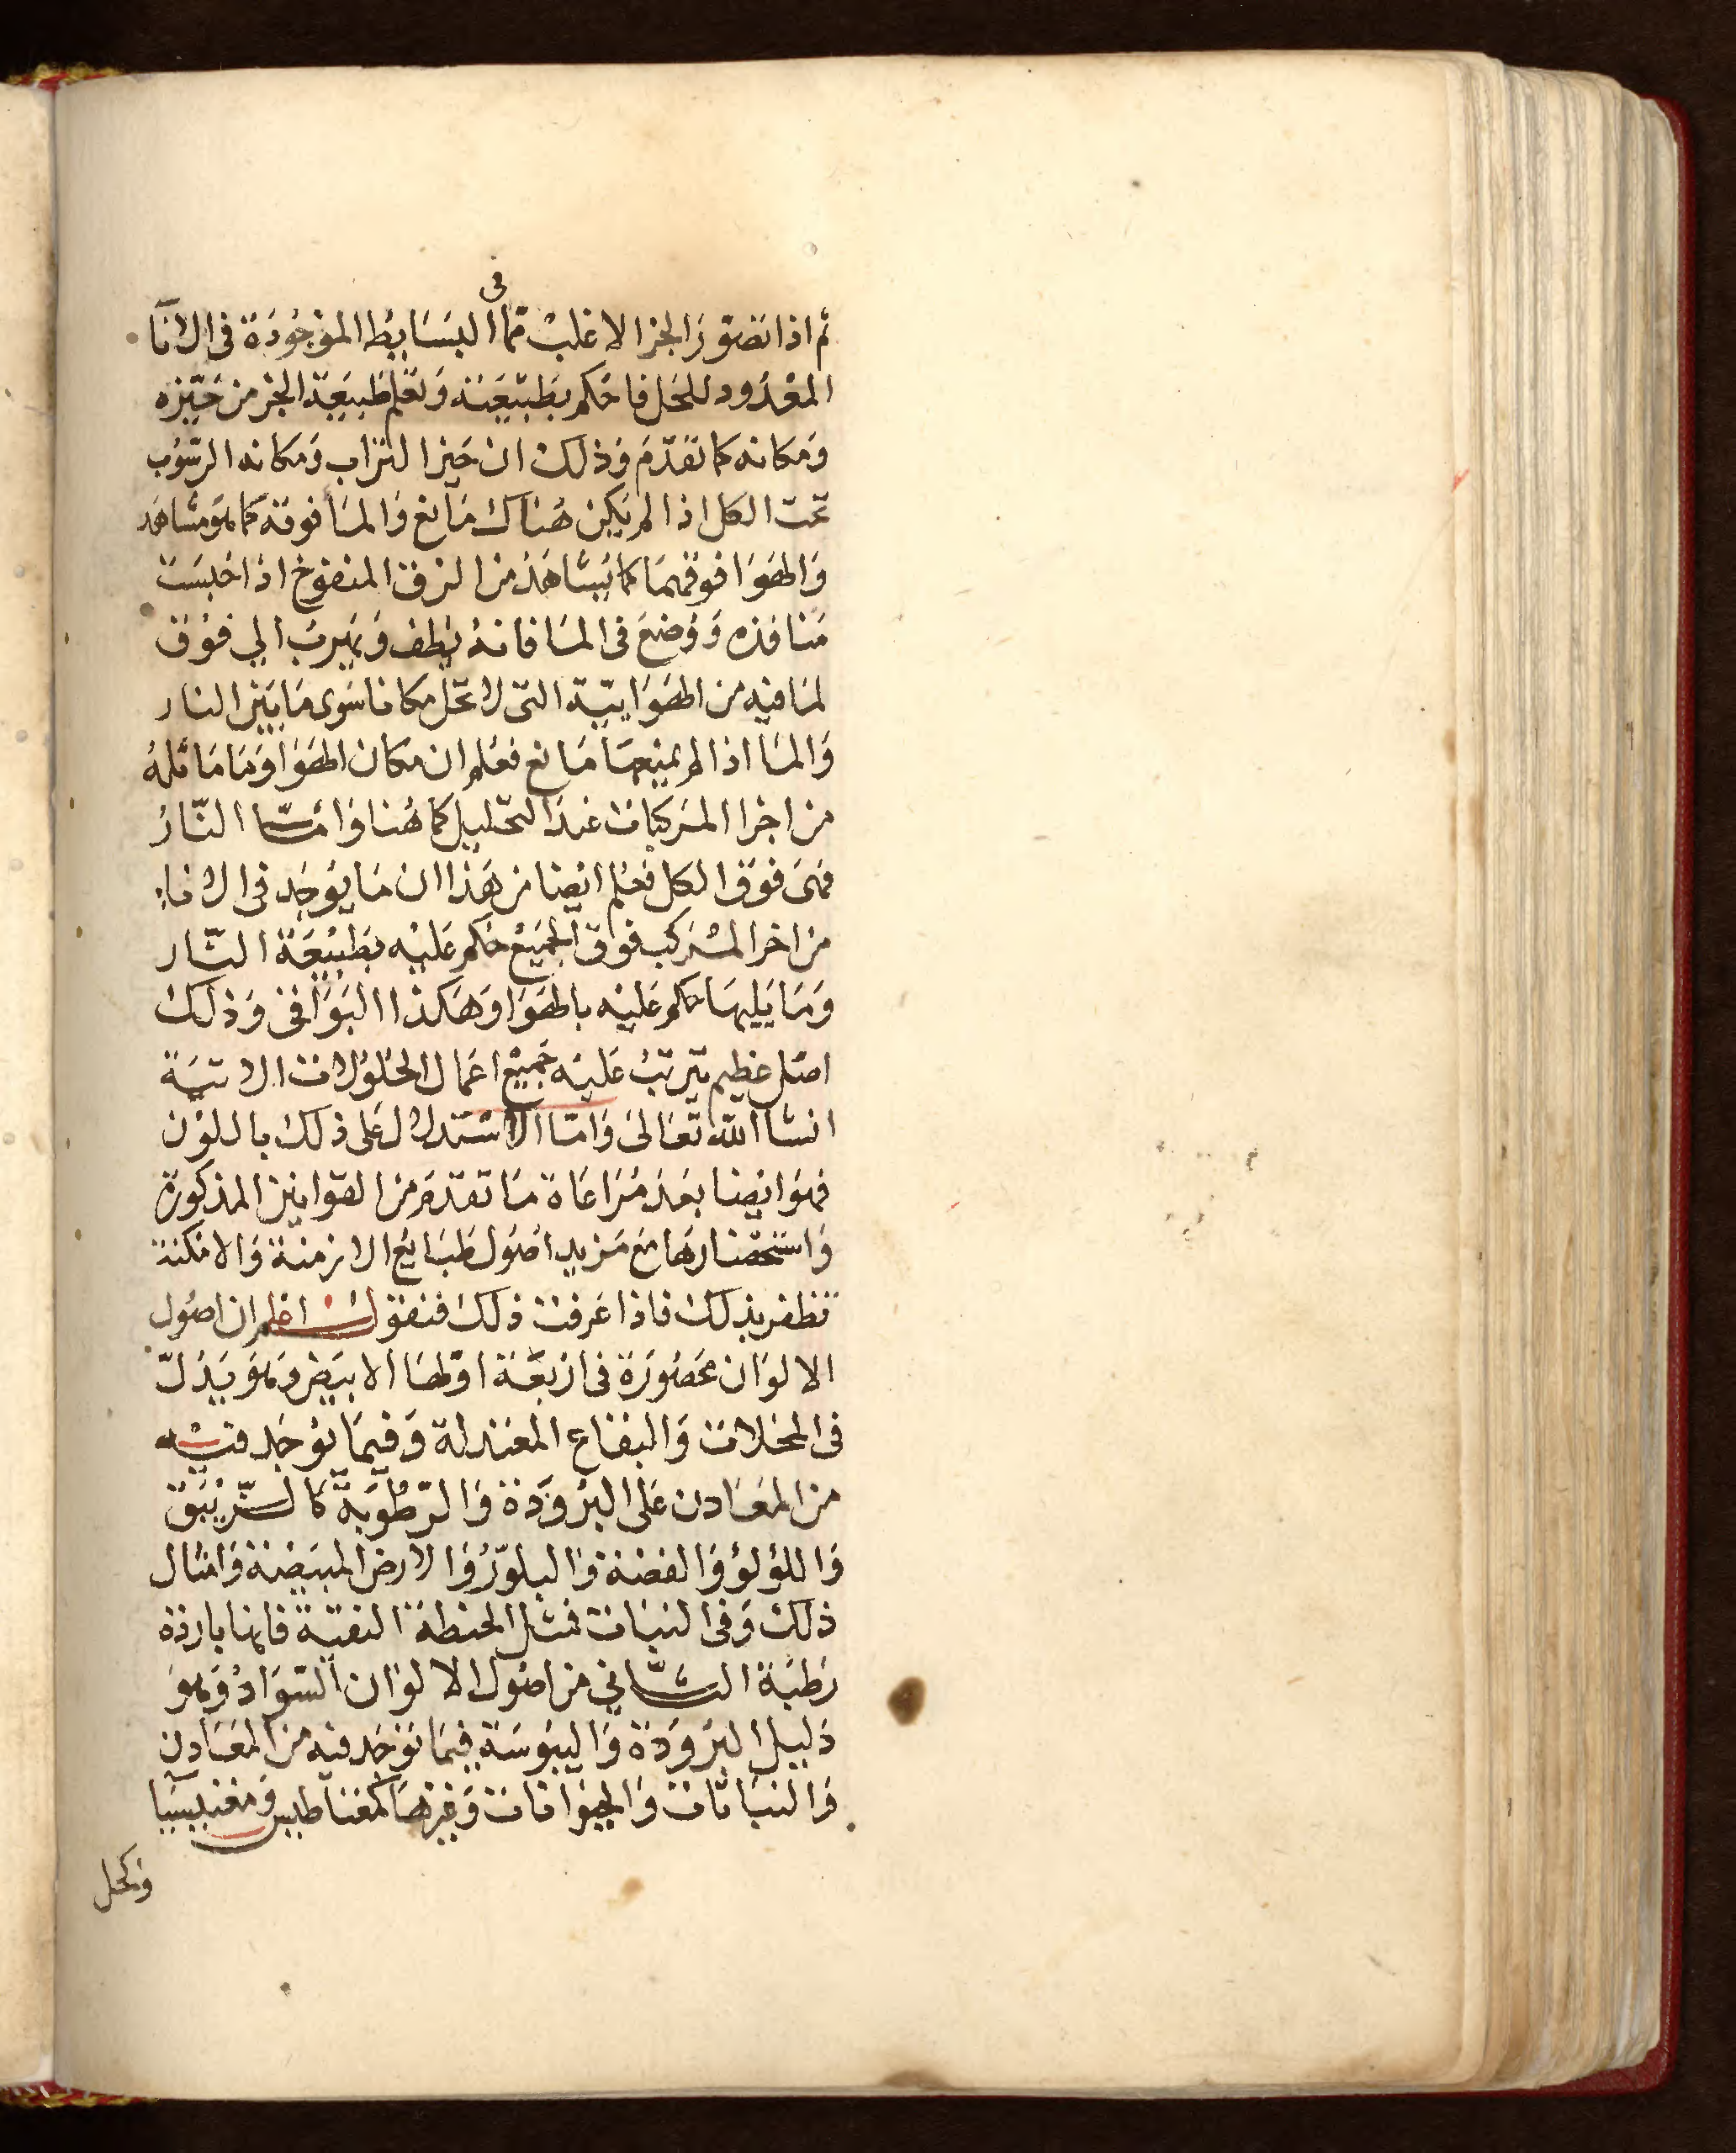 في
ثم اذا تصور الجز الاغلب مما البسايط الموجودة في الانا
المعدود للحل فاحكم بطبيعته وتعلم طبيعة الجز من حيزه
ومكانه كما تقدم وذلك ان حيز التراب ومكانه الرسوب
تحت الكل اذا لم يكن هناك مانع والما فوقه كما هو مشاهد
والهوا فوقهما كما يشاهد من الزق المنفوخ اذا حبست
منافذه ووضع في الما فانه يطف ويهرب الي فوق
لما فيه من الهوايية التي لا تحل مكانا سوى ما بين النار
والما اذا لم يمنعها مانع فعلم ان مكان الهوا وما ماثله
من اجزا المركبات عند التحليل كما هنا واما النار
فهى فوق الكل فعلم ايضا من هذا ان ما يوجد في الاناء
من اجزا المركب فوق الجميع حكم عليه بطبيعة النار
وما يليها حكم عليه بالهوا وهكذا البواقي وذلك
اصل عظيم يترتب عليه جميع اعمال الحلولات الاتية
انشا الله تعالى واما الاستدلال على ذلك باللون
فهو ايضا بعد مراعاة ما تقدم من القوانين المذكورة
واستحضارها مع مزيد اصول طبايع الازمنة والامكنة
تظفر بذلك فاذا عرفت ذلك فنقول اعلم ان اصول
الالوان محصورة في اربعة اولها الابيض وهو يدل
في المحلات والبقاع المعتدلة وفيما يوجد فيه
من المعادن على البرودة والرطوبة كالزيبق
واللؤلؤ والفضة والبلور والارض المبيضة وامثال
ذلك وفي النبات فمثل الحنطة النقية فانها باردة
رطبة الثاني من اصول الالوان السواد وهو
دليل البرودة واليبوسة فيما توجد فيه من المعادن
والنباتات والحيوانات وغيرها كمغناطيس ومغنيسيا
وكحل